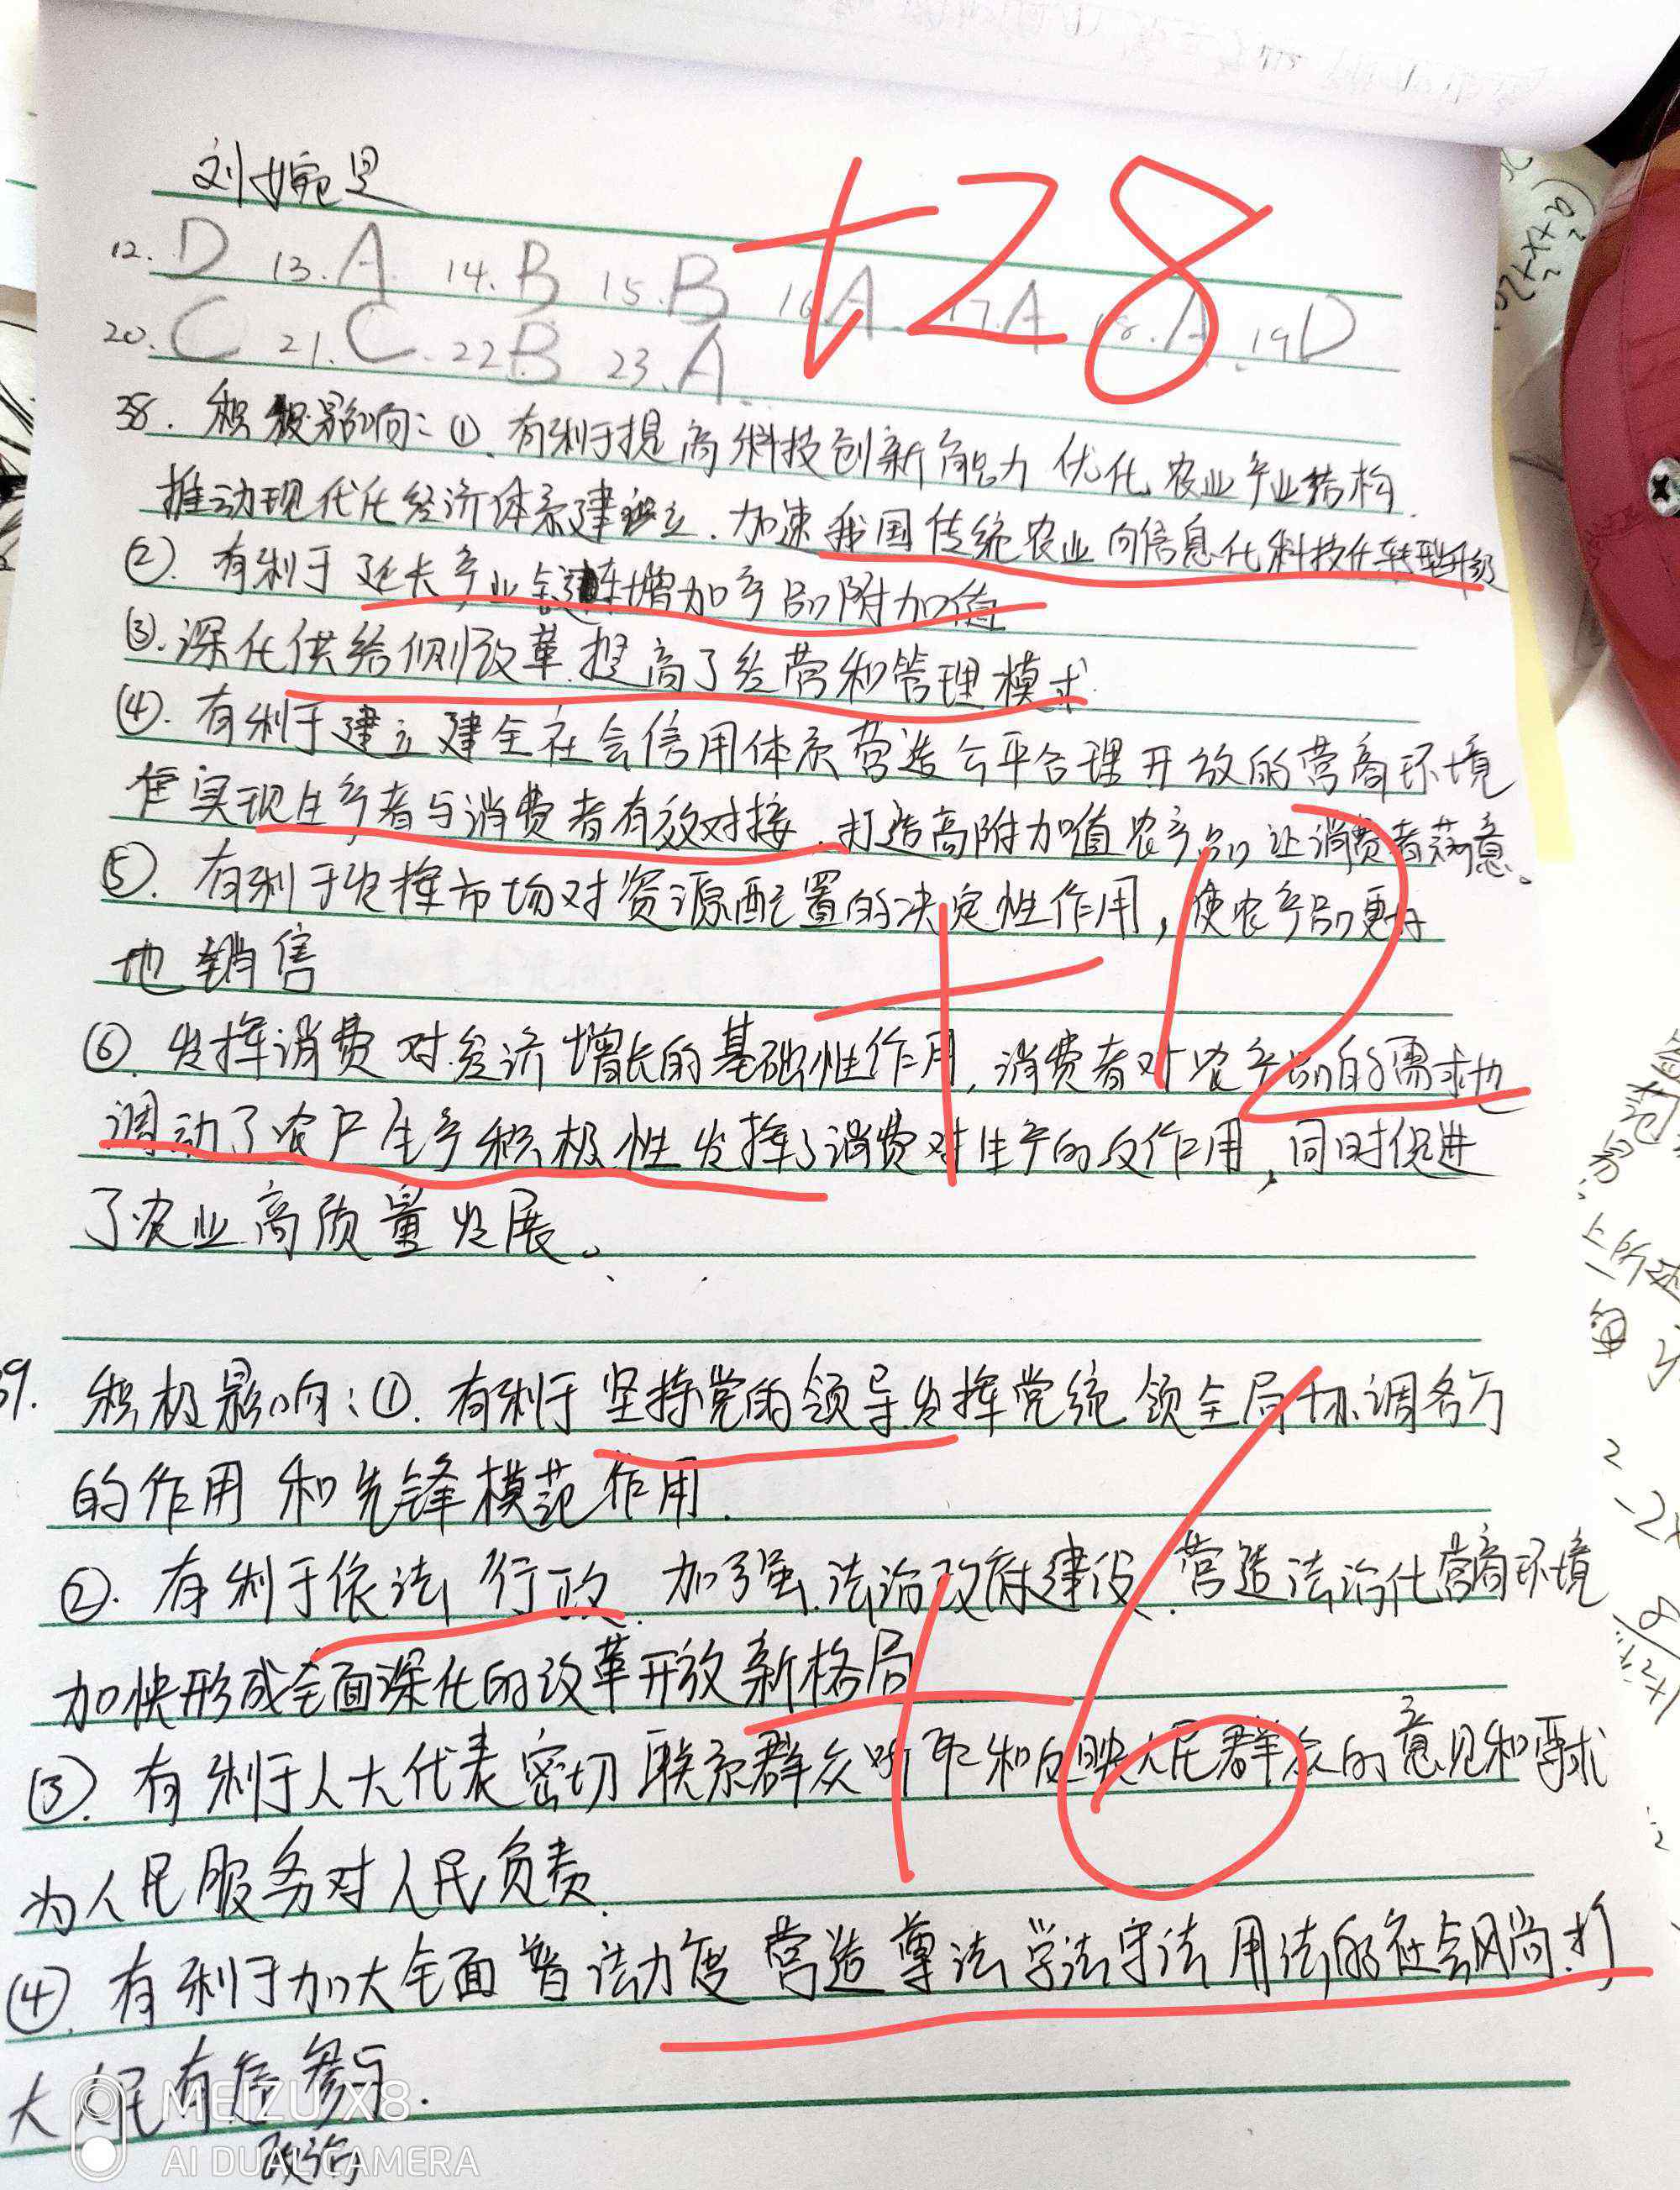 刘婉昱
+28
12. D 13. A 14. B 15. B 16. A 17. A 18. A 19 D
20. C 21. C 22 B 23. A
38. 积极影响: ①. 有利于提高科技创新能力 优化农业产业结构
推动现代化经济体系建立. 加速我国传统农业向信息化科技化转型升级
②. 有利于延长产业链增加产品附加值
③. 深化供给侧改革. 提高了经营和管理模式
④. 有利于建立健全社会信用体系营造公平合理开放的营商环境
实现生产者与消费者有效对接. 打造高附加值农产品让消费者满意。
⑤. 有利于发挥市场对资源配置的决定性作用, 使农产品更好
地销售
+12
⑥. 发挥消费对经济增长的基础性作用, 消费者对农产品的需求也
调动了农户生产积极性发挥了消费对生产的反作用, 同时促进
了农业高质量发展。
39. 积极影响: ①. 有利于坚持党的领导发挥党统领全局协调各方
的作用和先锋模范作用.
②. 有利于依法行政. 加强法治政府建设. 营造法治化营商环境
加快形成全面深化的改革开放新格局
+6
③. 有利于人大代表密切联系群众听取和反映人民群众的意见和要求
为人民服务对人民负责.
④. 有利于加大全面普法力度营造尊法学法守法用法的社会风尚. 扩
大人民有序参与.
政治
MEIZU X8
AI DUAL CAMERA